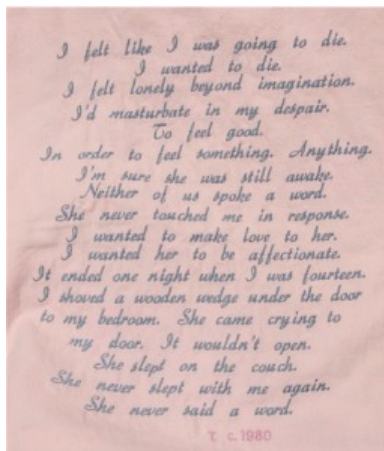 I felt like I was going to die.
I wanted to die.
I felt lonely beyond imagination.
I'd masturbate in my despair.
To feel good.
In order to feel something. Anything.
I'm sure she was still awake.
Neither of us spoke a word.
She never touched me in response.
I wanted to make love to her.
I wanted her to be affectionate.
It ended one night when I was fourteen.
I shoved a wooden wedge under the door
to my bedroom. She came crying to
my door. It wouldn't open.
She slept on the couch.
She never slept with me again.
She never said a word.
T. c.1980